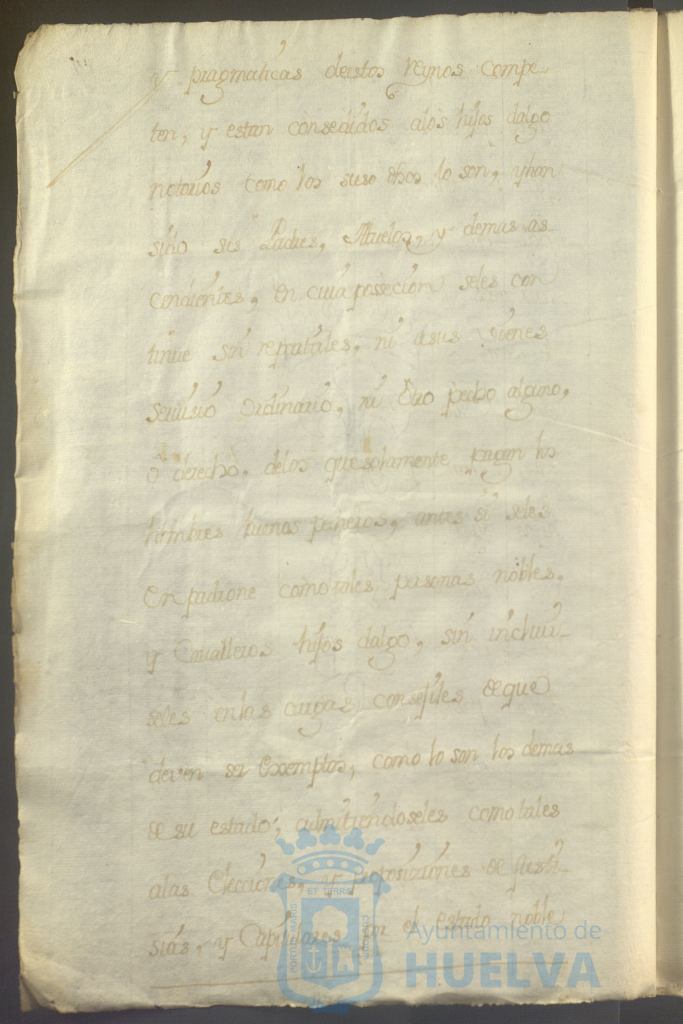 y pragmaticas destos reynos compe-
ten, y estan consedidos alos hijos dalgo
notorios como los suso dhos lo son, y han
sido sus Padres, Abuelos, y demas as-
cendientes, en cuia possecion seles con
tinue sin repartirles, ni a sus vienes
servisio ordinario, ni otro pecho alguno,
o derecho, delos que solamente pagan los
hombres buenos pecheros, antes si seles
Enpadrone como tales personas nobles,
y Cavalleros hijos dalgo, sin incluir-
seles en las cargas consejiles de que
deven ser exemptos, como lo son los demas
de su estado, admitiendoseles como tales
alas Elecciones, y proposiziones de Justi-
sias, y Capitulares en el estado noble
PORTUS MARIS
ET TERRAE
CUSTODIA
Ayuntamiento de
HUELVA